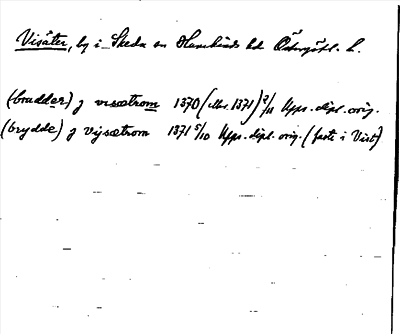 Visäter, by i Skeda sn Hanekinds hd Östergötl. l.
(braddær) j visætrom 1370 (eller 1371) 2/11 Upps. dipl. orig.
(brydde) j vijsætrom 1371 5/10 Upps. dipl. orig. (faste i Vist)